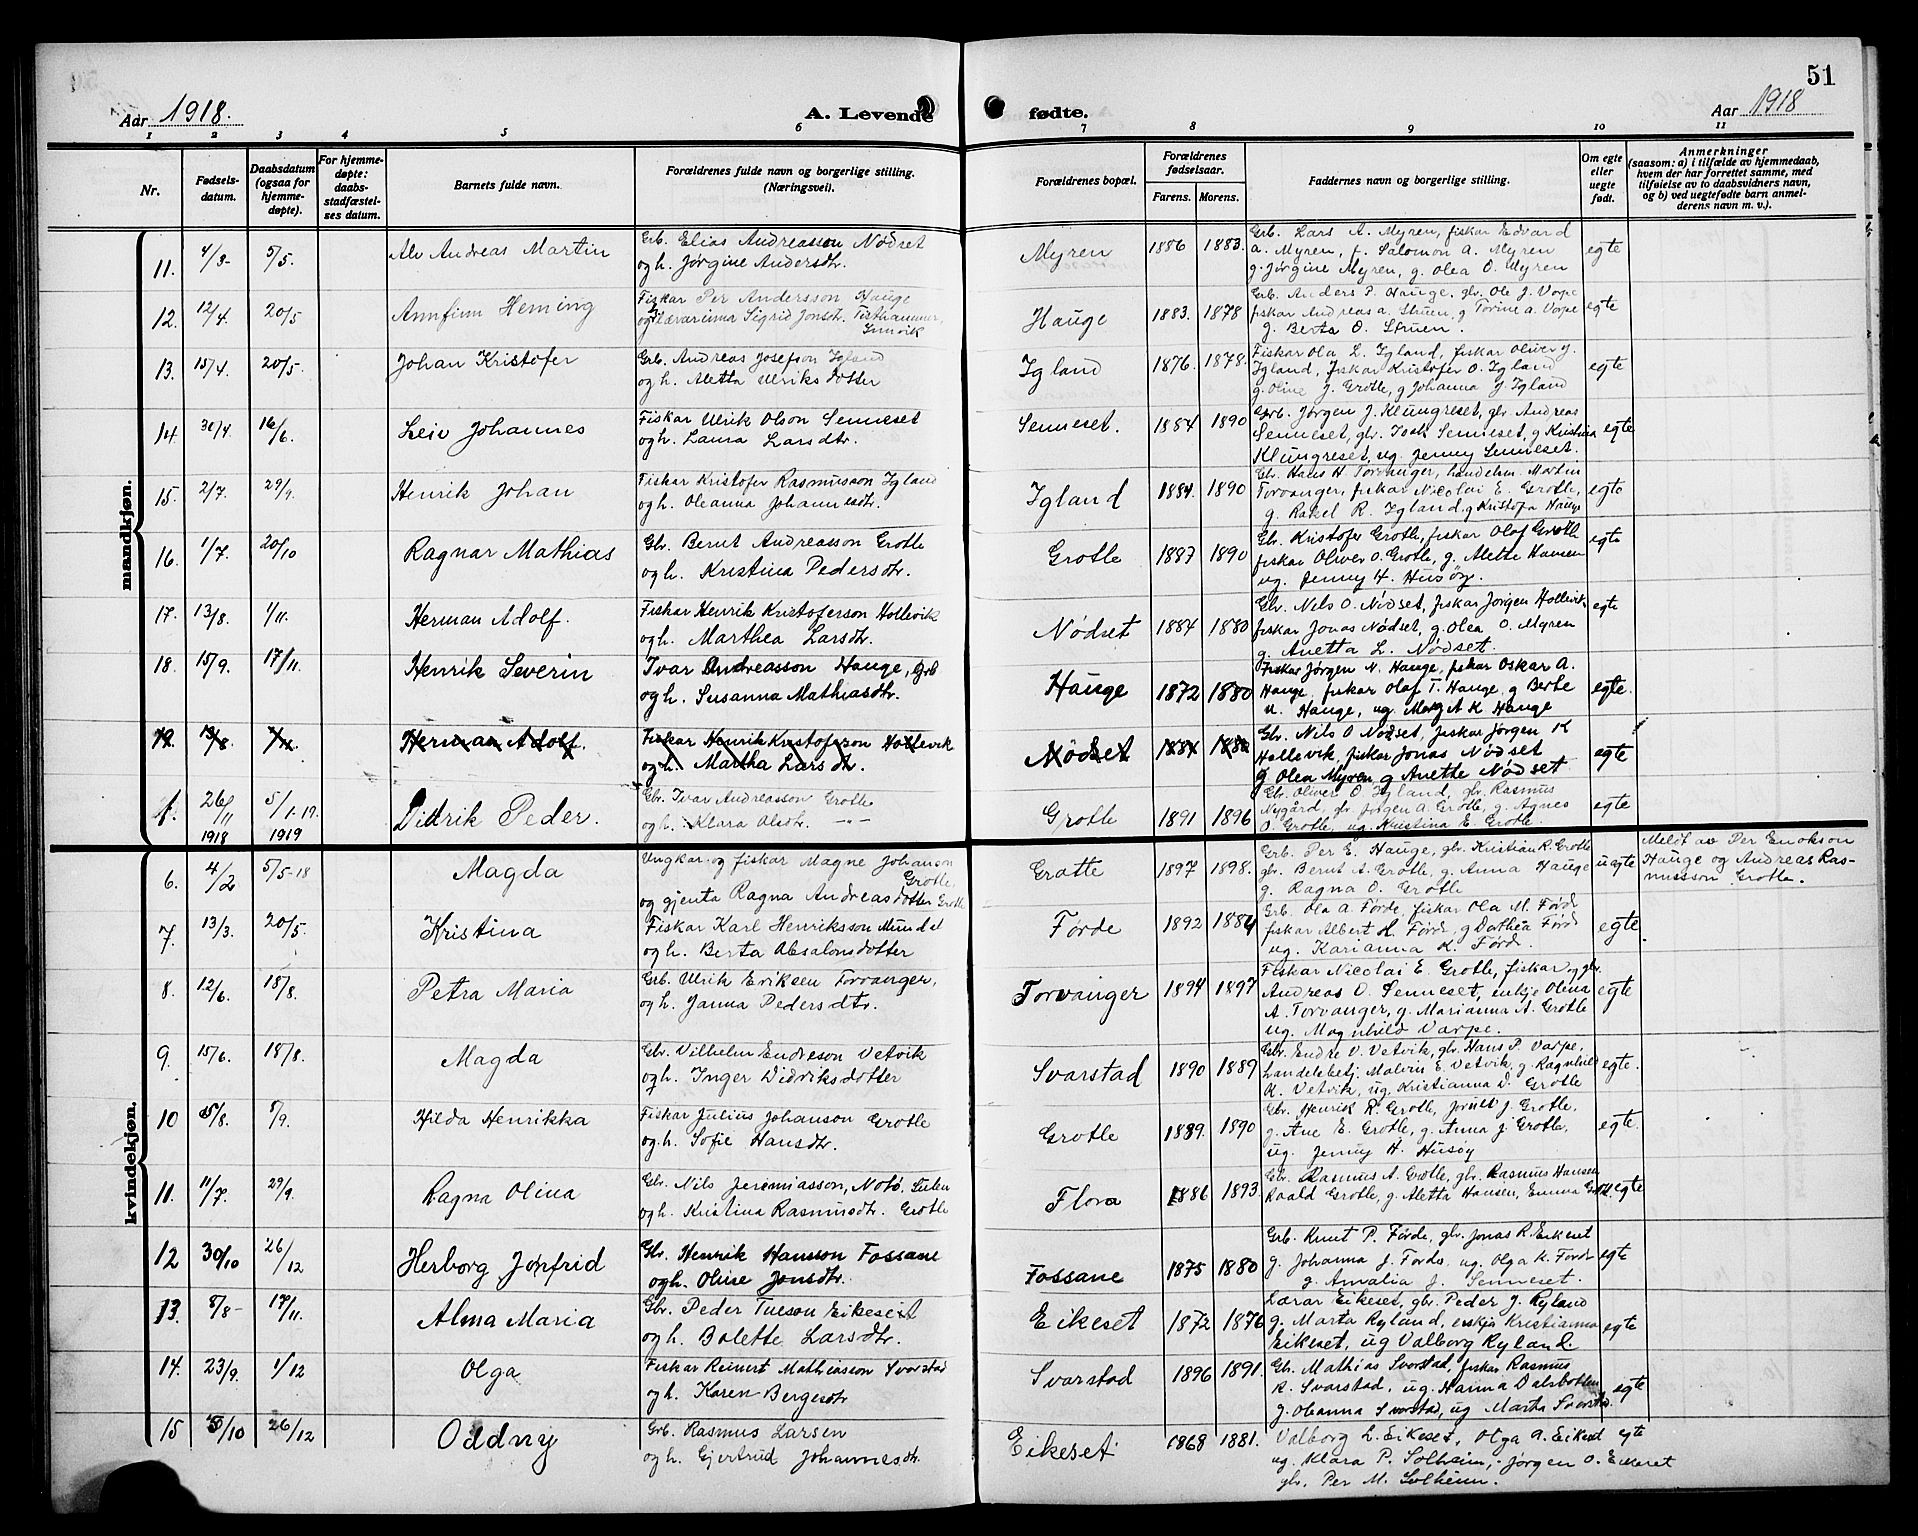 51
Aar 1918.
A. Levende fødte.
Aar 1918
1 2 3 4 5 6 7 8 9 10 11
Nr.
Fødsels-
datum.
Daabsdatum
(ogsaa for
hjemme-
døpte).
For hjemme-
døpte:
daabs-
stadfæstel-
ses datum.
Barnets fulde navn.
Forældrenes fulde navn og borgerlige stilling.
(Næringsvei).
Forældrenes bopæl.
Forældrenes
fødselsaar.
Farens. Morens.
Faddernes navn og borgerlige stilling.
Om egte
eller
uegte
født.
Anmerkninger
(saasom: a) i tilfælde av hjemmedaab,
hvem der har forrettet samme, med
tilføielse av to daabsvidners navn,
og b) ved uegtefødte barn anmel-
derens navn m. v.).
mandkjøn.
11. 4/3- 5/5. Alv Andreas Martin
Grb. Elias Andreasson Nødset
og h. Jørgine Andersdtr.
Myren 1886 1883.
Grb. Lars A. Myren, fiskar Edvard
A. Myren, f. Salomon A. Myren
g. Jørgine Myren, g. Olea O. Myren
egte
12. 12/4. 20/5 Annfinn Heming
Fiskar Per Andersson Hauge
Sigrid Jonsdtr.
Hauge 1883. 1878
Grb. Anders P. Hauge, gbr. Ole J. Varpe
fiskar Andreas A. Struen, g Torine A. Varpe
g. Berta O. Struen.
egte
13. 15/4. 20/5. Johan Kristofer
Grb. Andreas Josefson Igland
og h. Aletta Ulriksdotter
Igland 1876. 1878.
Fiskar Ola L. Igland, fiskar Oliver J.
Igland, fiskar Kristofer O. Igland
g. Oline J. Grotle, g Johanna J Igland
egte
14 30/4. 16/6. Leiv Johannes
Fiskar Ulrik Olson Senneset
og h. Laura Larsdtr.
Senneset. 1884 1890
Grb. Jørgen J. Klungreset, gbr Andreas
Senneset, gbr. Isak Senneset, g Kristina
Klungreset, ug. Jenny Senneset.
egte
15. 2/7. 29/9. Henrik Johan
Fiskar Kristofer Rasmusson Igland
og h. Oleanna Johannesdtr.
Igland 1884. 1890
Gbr. Hans H Torvanger, handelsm. Morten
Torvanger, fiskar Nicolai E. Grotle,
g. Rakel R. Igland, g Kristofa Hauge
egte
16. 1/7. 20/10 Ragnar Mathias
Gbr. Bernt Andreasson Grotle
og h. Kristina Pedersdtr.
Grotle 1887 1890
Gbr. Kristofer Grotle, fiskar Olaf Grotle
fiskar Oliver O. Grotle, g. Alette Hansen
ug. Jenny H. Husøy.
egte
17. 13/8. 1/11. Herman Adolf.
Fiskar Henrik Kristoferson Hollevik
og h. Marthea Larsdtr.
Nødset 1884 1880
Gbr. Nils O. Nødset, fiskar Jørgen Hollevik
fiskar Jonas Nødset, g. Olea O. Myren
g. Anetta L. Nødset.
egte
18. 15/9. 17/11. Henrik Severin
Ivar Andreasson Hauge, Grb
og h. Susanna Mathiasdtr.
Hauge 1872 1880
Fiskar Jørgen N. Hauge, fiskar Oskar A.
Hauge, fiskar Olaf T. Hauge, g Berte
N. Hauge, ug. Margit K Hauge
egte.
19. 13/8. 1/11. Herman Adolf.
Fiskar Henrik Kristoferson Hollevik
og h. Martha Larsdtr.
Nødset 1884 1880
Gbr. Nils O Nødset, fiskar Jørgen K
Hollevik, fiskar Jonas Nødset
g Olea Myren, g Anette Nødset
egte
1. 26/11 1918 5/1-19. 1919 Didrik Peder.
Gbr. Ivar Andreasson Grotle
og h. Klara Olsdtr. -"-
Grotle 1891 1896
Gbr. Oliver O Igland, gbr. Rasmus
Nygård, gbr. Jørgen A. Grotle, g. Agnes
O. Grotle, ug. Kristina E. Grotle.
egte
kvindekjøn.
6. 4/2 5/5-18 Magda
Ungkar og fiskar Magne Johanson
Grotle,
og gjenta Ragna Andreasdotter Grotle
Grotte 1897 1898.
Grb. Per E. Hauge, gbr. Kristian R. Grotle
gbr. Bernt A. Grotle, g. Anna Hauge
g. Ragna O. Grotle
uegte
Meldt av Per Enokson
Hauge og Andreas Ras-
musson Grotle.
7. 13/3. 20/5. Kristina
Fiskar Karl Henriksson Mundal
og h. Berta Absalonsdotter
Førde 1892 1884
Grb. Ola A. Førde, fiskar Ola M. Førde
fiskar Albert H. Førde, g Dorthea Førde
ug. Karianna K. Førde.
egte
8. 12/6. 18/8. Petra Maria
Grb. Ulrik Eriksen Torvanger,
og h. Janna Pedersdtr.
Torvanger 1894 1897
Fiskar Nicolai E. Grotle, fiskar og gbr.
Andreas O. Senneset, enkje Olina
A. Torvanger, g. Marianna A. Grotle
ug. Magnhild Varpe.
egte
9. 15/6. 18/8. Magda
Gbr. Vilhelm Endreson Vetvik
og h. Inger Didriksdotter
Svarstad 1890 1889
Gbr. Endre V. Vetvik, gbr. Hans P. Varpe,
handelsbetj. Malvin E. Vetvik, g Ragnhild
K. Vetvik, ug. Kristianna D. Grotle
egte.
10 5/8. 1/9. Hilda Henrikka
Fiskar Julius Johanson Grotle
og h. Sofie Hansdtr.
Grotle 1889. 1890
Gbr. Henrik R. Grotle, J. Grotle,
g. Ane E. Grotle, g. Anna J. Grotle,
ug. Jenny H. Husøy
egte.
11. 11/7. 29/9. Ragna Olina
Gbr. Nils Jeremiasson, Notø. Sulen
og h. Kristina Rasmusdtr. Grotle
Florø 1886 1893.
Gbr. Rasmus A. Grotle, gbr. Rasmus Hansen
Roald Grotle, g. Aletta Hansen, Emma Grotle.
egte
12 30/10 26/12 Herborg Jonfrid
Gbr. Henrik Hansson Fossane
og h. Oline Jonsdtr.
Fossane 1875 1880
Grb. Knut P. Førde, gbr. Jonas R. Eikeset
g. Johanna J. Førde, ug. Olga K. Førde
g. Amalia J. Senneset.
egte
13. 8/8- 17/11. Alma Maria
Gbr. Peder Tueson Eikeset
og h. Bolette Larsdtr.
Eikeset 1872 1876
Lærar Eikeset, gbr. Peder J. Ryland
g. Marta Ryland, enkje Kristianna
Eikeset, ug Valborg Ryland.
egte
14. 23/9. 1/12 Olga
Fiskar Reinert Mathiasson Svarstad
og h. Karen Bergesdtr
Svarstad 1896 1891.
Gbr. Mathias Svarstad, fiskar Rasmus
R. Svarstad, ug. Hanna Dalsbotten
g. Oleanna Svarstad, ug Marta Svarstad
egte
15 /10 26/12 Oddny
Grb. Rasmus Larsen
og h. Gjertrud Johannesdtr.
Eikeset 1868 1881.
Valborg L. Eikeset, Olga A. Eikeset
ug. Klara P. Solheim, Jørgen O. Eikeset
gbr. Per M. Solheim.
egte